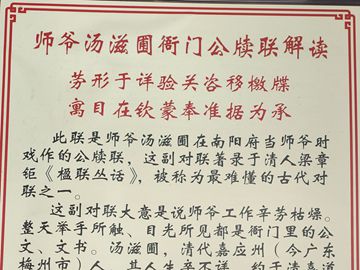 师爷汤滋圃衙门公牍联解读
劳形于详验关咨移檄牒
寓目在钦蒙奉准据为承
此联是师爷汤滋圃在南阳府当师爷时
戏作的公牍联，这副对联著录于清人梁章
钜《楹联丛话》，被称为最难懂的古代对
联之一。
这副对联大意是说师爷工作辛劳枯燥。
整天举手所触、目光所见都是衙门里的公
文、文书。汤滋圃，清代嘉应州（今广东
梅州市）人，其人生卒不详，约于清嘉道